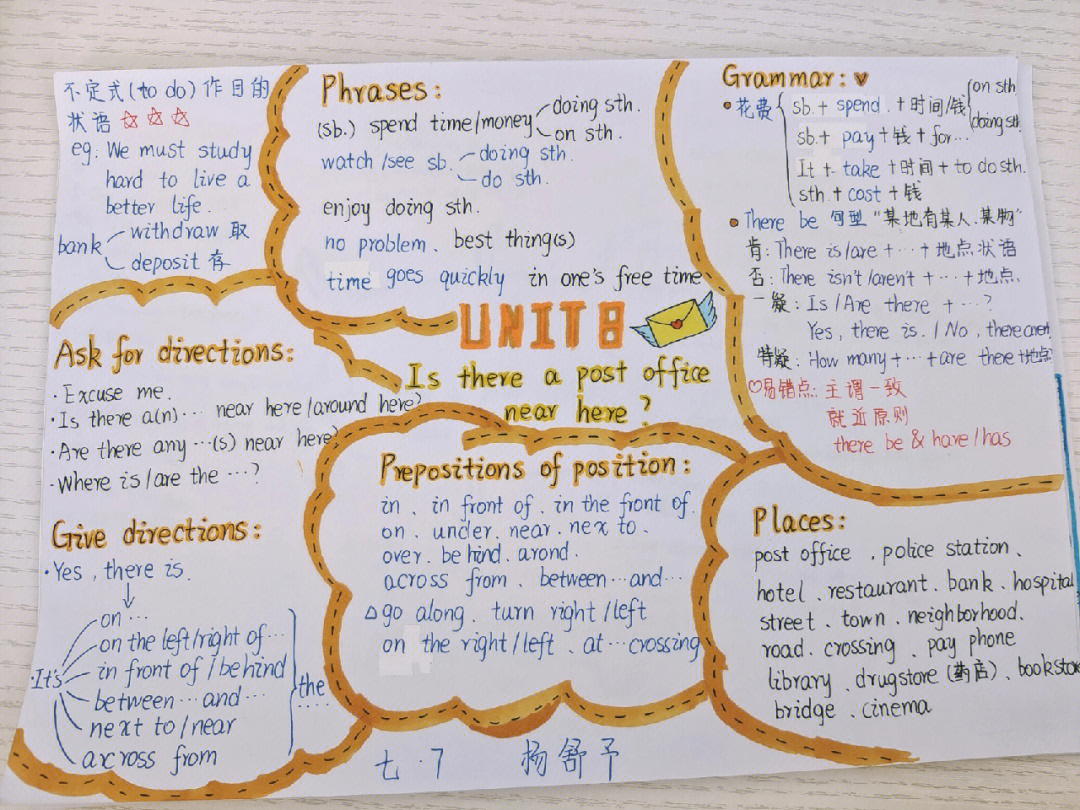 不定式(to do)作目的
状语 ☆☆☆
eg: We must study
hard to live a
better life.
bank withdraw 取
deposit 存
Phrases:
(sb.) spend time/money doing sth.
on sth.
watch/see sb. doing sth.
do sth.
enjoy doing sth.
no problem、best thing(s)
time goes quickly in one's free time
Grammar:♥
•花费 sb.+ spend.+时间/钱 on sth
doing sth.
sb.+ pay+钱+for…
It + take +时间+to do sth.
sth + cost +钱
•There be 句型 “某地有某人.某物”
肯: There is/are +…+地点状语
否: There isn't/aren't +…+地点.
一疑: Is/Are there +…?
Yes, there is. / No, there aren't
特疑: How many+…+are there+地点
♡易错点: 主谓一致
就近原则
there be & have/has
UNIT 8
Is there a post office
near here?
Ask for directions:
·Excuse me.
·Is there a(n)… near here/around here?
·Are there any …(s) near here?
·Where is/are the …?
Give directions:
·Yes, there is.
↓
·It's
on …
on the left/right of…
in front of/behind
between…and…
next to/near
arcross from
the
....
Prepositions of position:
in、in front of、in the front of.
on、under、near、nex to、
over、behind、arond.
across from、between…and…
△go along、turn right/left
on the right/left、at…crossing
Places:
post office、police station、
hotel、restaurant、bank、hospital
street、town、neighborhood.
road、crossing、pay phone
library、drugstore (药店)、bookstore
bridge、cinema
七·7 杨舒予